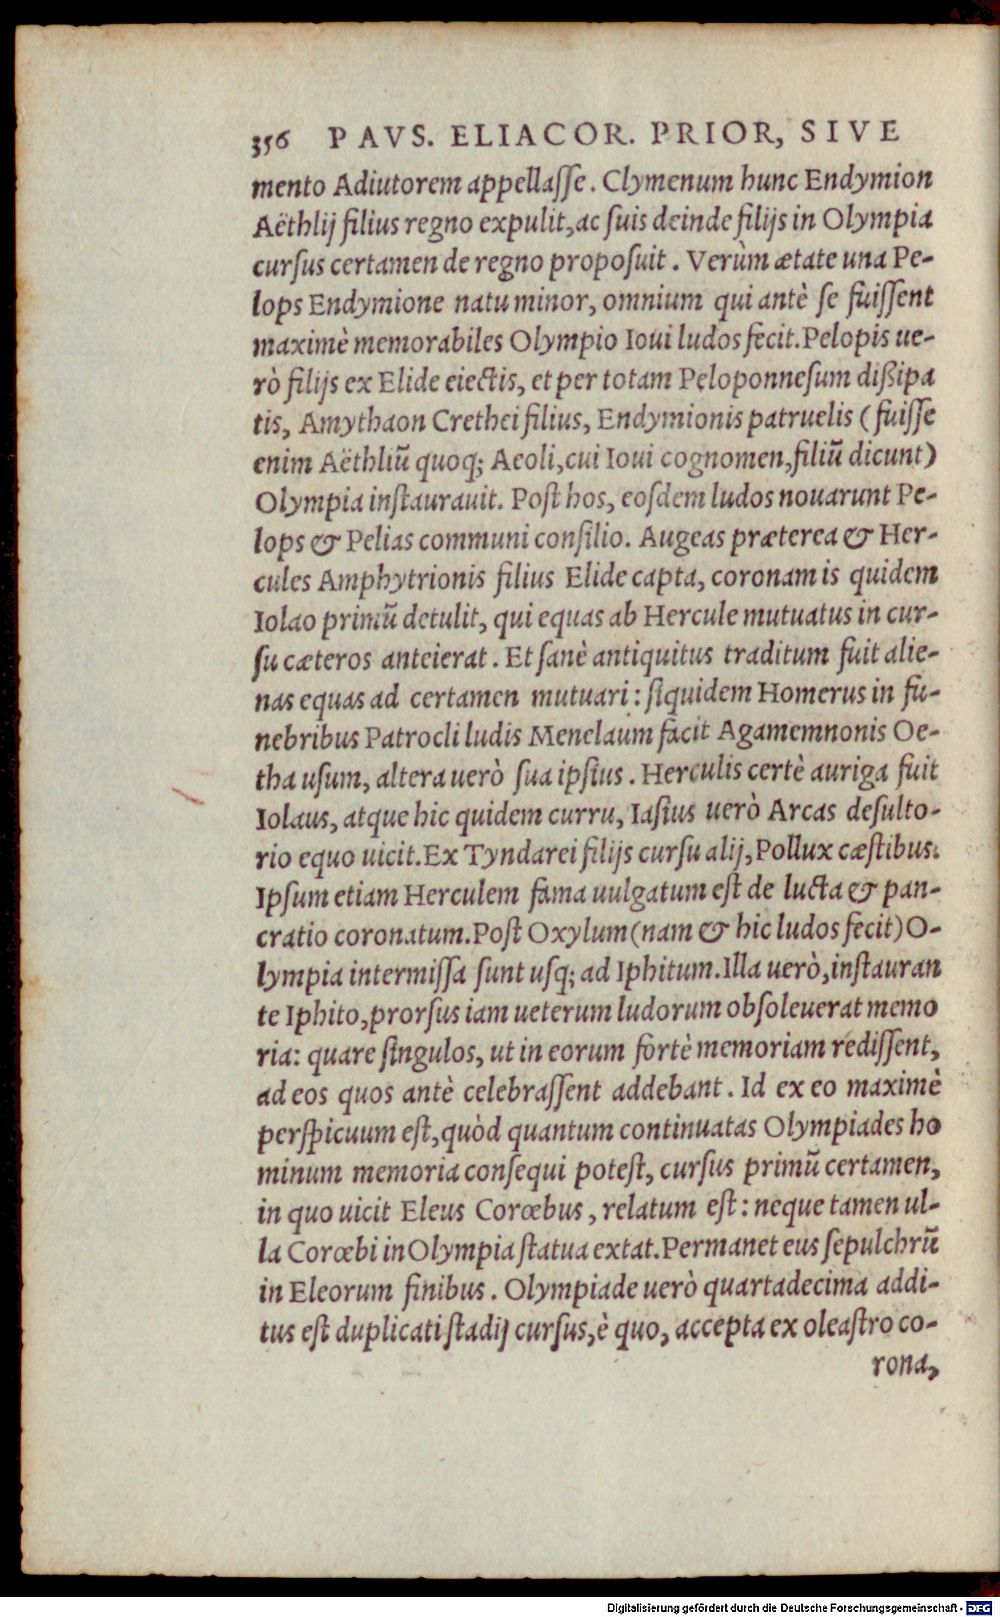 356 PAVS. ELIACOR. PRIOR, SIVE
mento Adiutorem appellaſſe. Clymenum hunc Endymion
Aëthlij filius regno expulit, ac ſuis deinde filijs in Olympia
curſus certamen de regno propoſuit. Verùm ætate una Pe-
lops Endymione natu minor, omnium qui antè ſe fuiſſent
maximè memorabiles Olympio Ioui ludos fecit. Pelopis ue-
rò filijs ex Elide eiectis, et per totam Peloponneſum dißipa
tis, Amythaon Crethei filius, Endymionis patruelis (fuiſſe
enim Aëthliũ quoq; Aeoli, cui Ioui cognomen, filiũ dicunt)
Olympia inſtaurauit. Poſt hos, eoſdem ludos nouarunt Pe-
lops & Pelias communi conſilio. Augeas præterea & Her-
cules Amphytrionis filius Elide capta, coronam is quidem
Iolao primũ detulit, qui equas ab Hercule mutuatus in cur-
ſu cæteros anteierat. Et ſanè antiquitus traditum fuit alie-
nas equas ad certamen mutuari: ſiquidem Homerus in fu-
nebribus Patrocli ludis Menelaum facit Agamemnonis Oe-
tha uſum, altera uerò ſua ipſius. Herculis certè auriga fuit
Iolaus, atque hic quidem curru, Iaſius uerò Arcas deſulto-
rio equo uicit. Ex Tyndarei filijs curſu alij, Pollux cæſtibus.
Ipſum etiam Herculem fama uulgatum eſt de lucta & pan-
cratio coronatum. Poſt Oxylum (nam & hic ludos fecit) O-
lympia intermiſſa ſunt uſq; ad Iphitum. Illa uerò, inſtauran
te Iphito, prorſus iam ueterum ludorum obſoleuerat memo
ria: quare ſingulos, ut in eorum fortè memoriam rediſſent,
ad eos quos antè celebraſſent addebant. Id ex eo maximè
perſpicuum eſt, quòd quantum continuatas Olympiades ho
minum memoria conſequi poteſt, curſus primũ certamen,
in quo uicit Eleus Corœbus, relatum eſt: neque tamen ul-
la Corœbi in Olympia ſtatua extat. Permanet eus ſepulchrũ
in Eleorum finibus. Olympiade uerò quartadecima addi-
tus eſt duplicati ſtadij curſus, è quo, accepta ex oleaſtro co-
rona,
Digitalisierung gefördert durch die Deutsche Forschungsgemeinschaft - DFG